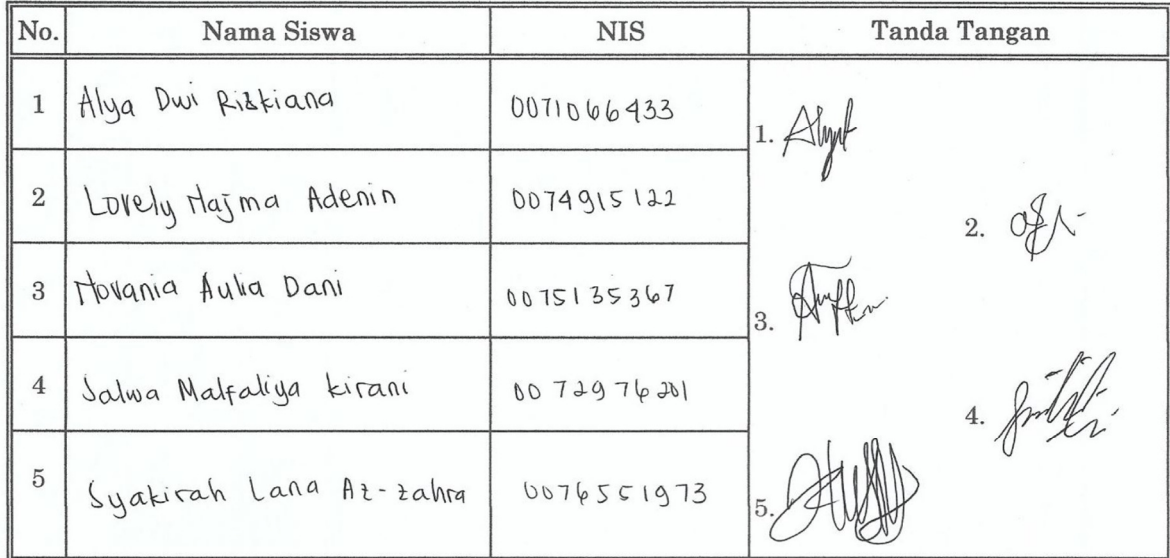 No. Nama Siswa NIS Tanda Tangan
1 Alya Dwi Riskiana 0071066433 1.
2 Lovely Najma Adenin 0074915122 2.
3 Novania Aulia Dani 0075135367 3.
4 Salwa Malfaliya kirani 0072976201 4.
5 Syakirah Lana Az-zahra 0076551973 5.